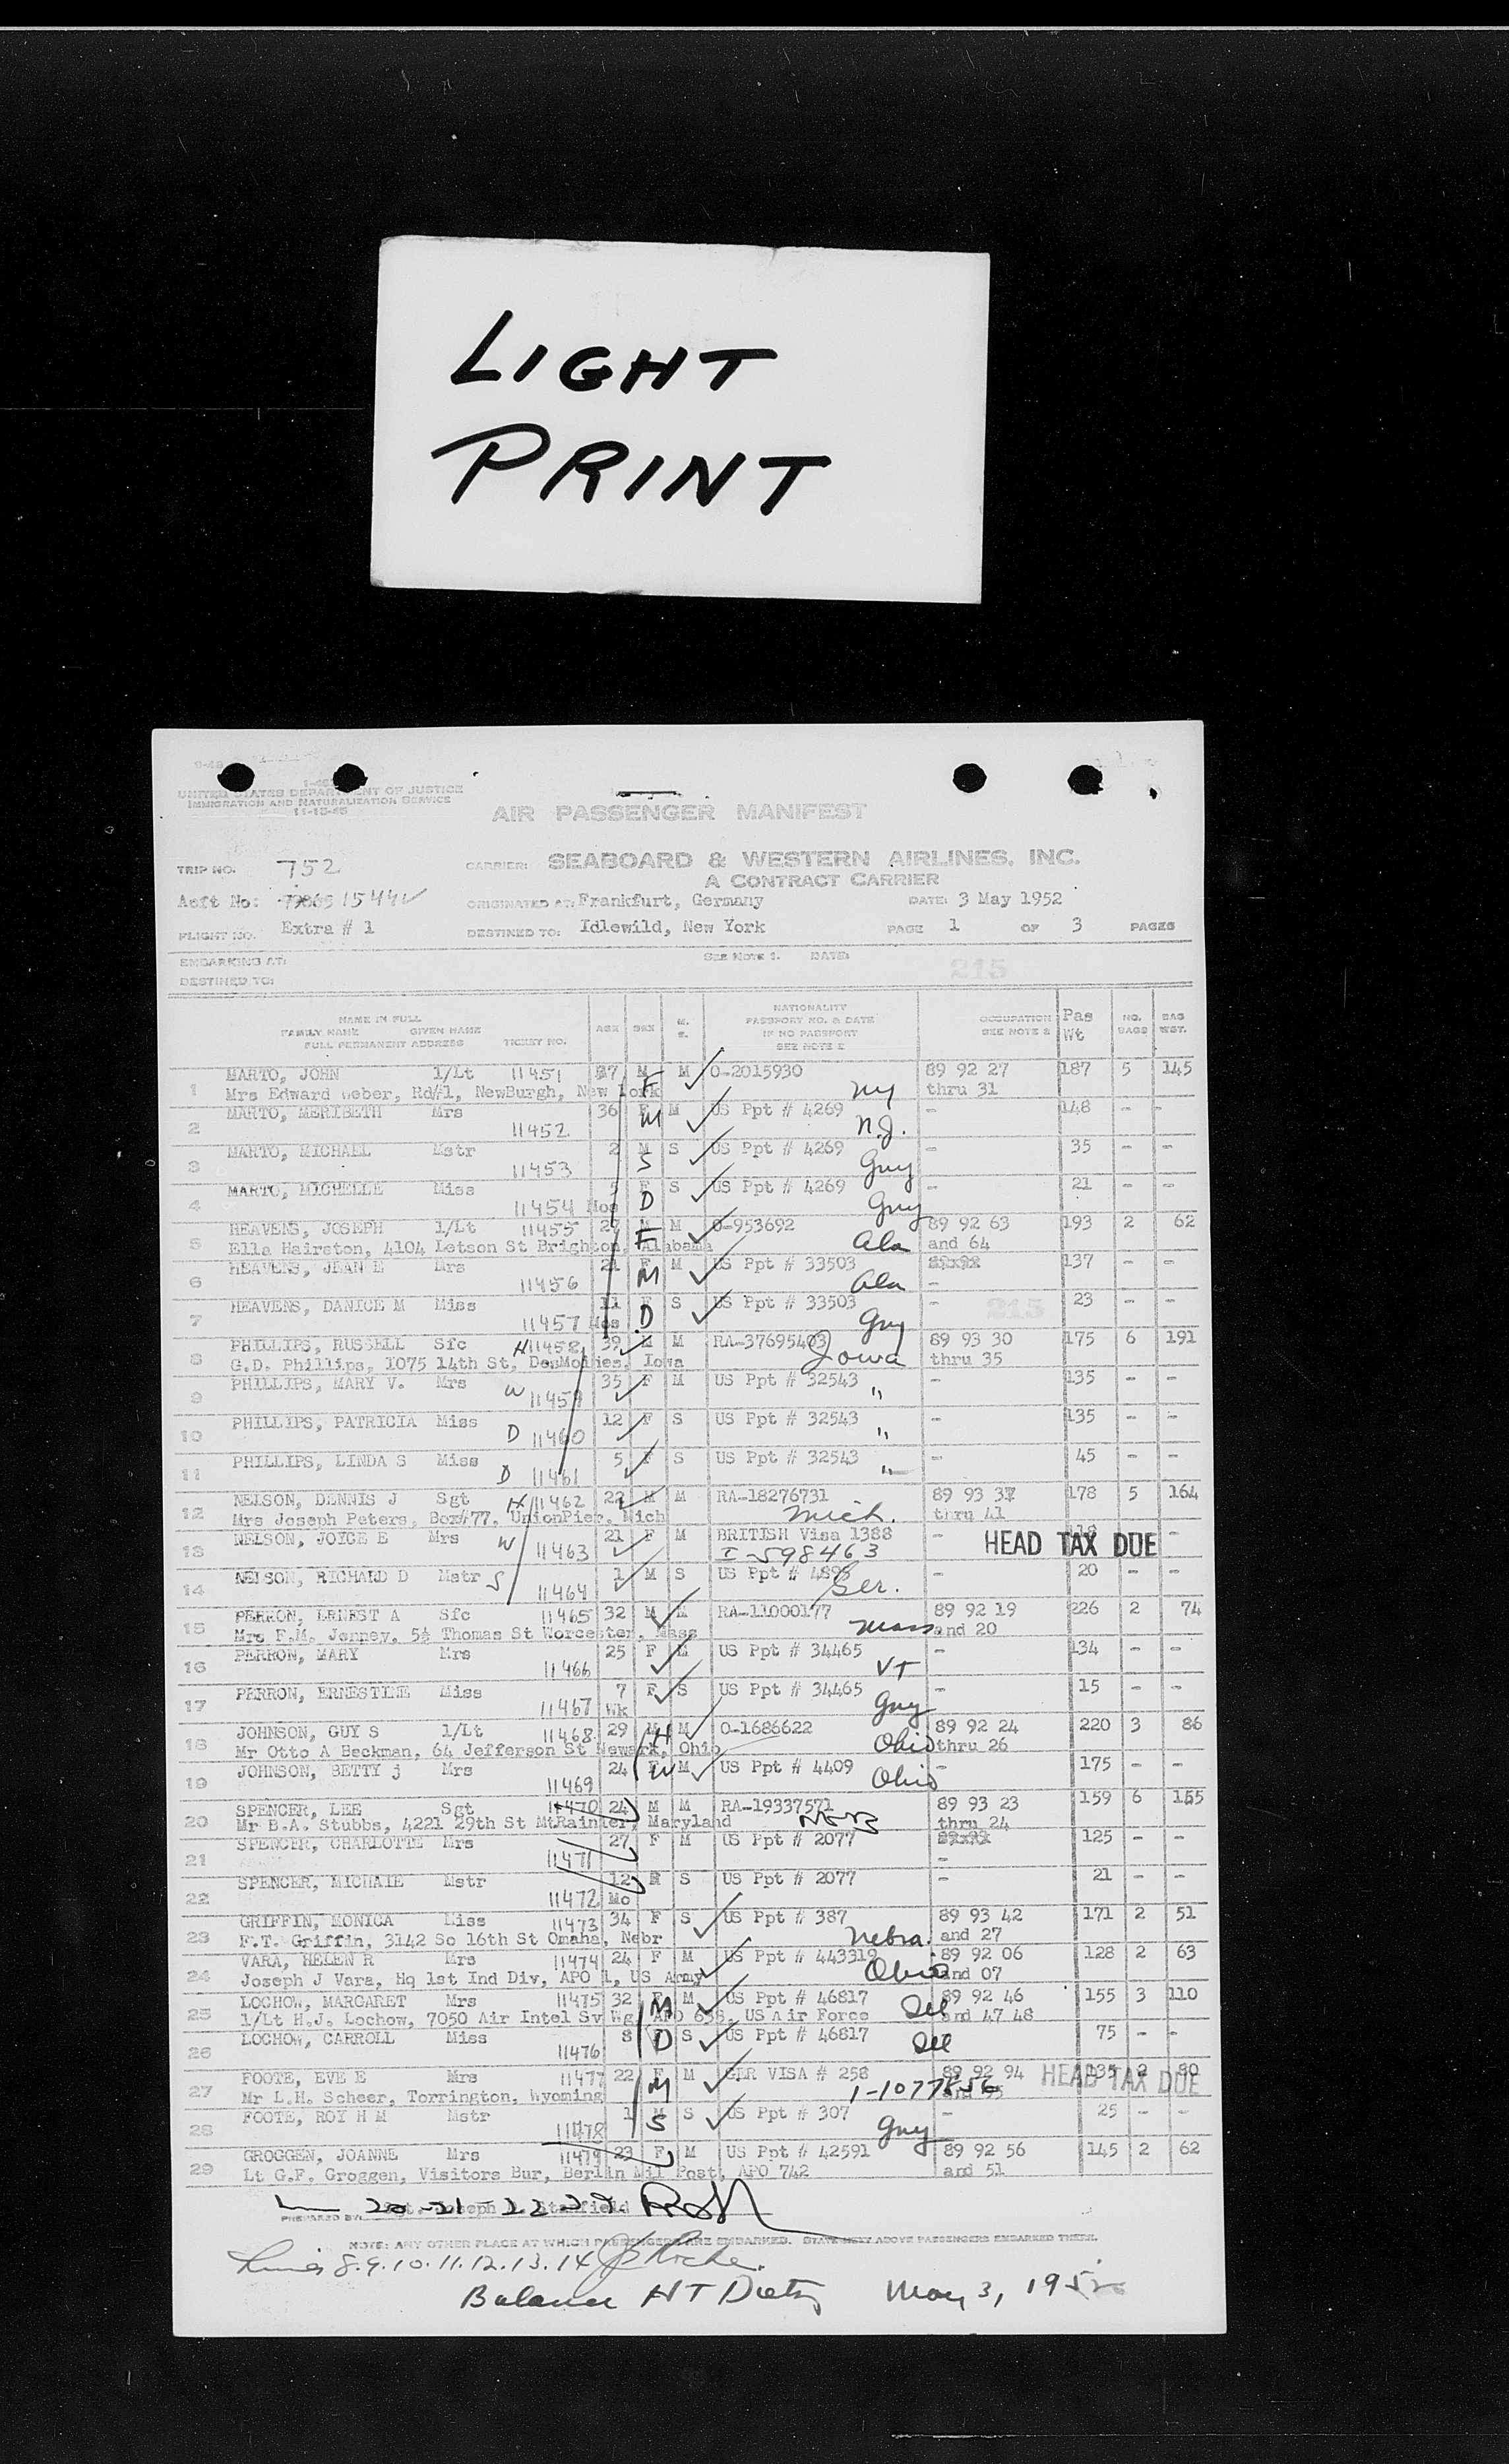 LIGHT
PRINT
UNITED STATES DEPARTMENT OF JUSTICE
IMMIGRATION AND NATURALIZATION SERVICE
11-15-45
AIR PASSENGER MANIFEST
TRIP NO. 752
CARRIER: SEABOARD & WESTERN AIRLINES, INC.
A CONTRACT CARRIER
Acft No: 1544V
ORIGINATED AT: Frankfurt, Germany DATE: 3 May 1952
FLIGHT NO. Extra # 1 DESTINED TO: Idlewild, New York PAGE 1 OF 3 PAGES
EMBARKING AT: SEE NOTE 1. DATE:
DESTINED TO: 215
NAME IN FULL
FAMILY NAME GIVEN NAME
FULL PERMANENT ADDRESS TICKET NO. AGE SEX M. S. NATIONALITY
PASSPORT NO. & DATE
IF NO PASSPORT
SEE NOTE 2 OCCUPATION
SEE NOTE 2 Pas
Wt NO.
BAGS BAG
WGT.
1 MARTO, JOHN 1/Lt 11451 37 M M O-2015930 89 92 27 187 5 145
Mrs Edward Weber, Rd#1, NewBurgh, New York F NY thru 31
2 MARTO, MERIBETH Mrs 11452 36 F M US Ppt # 4269 - 148 - -
M N.J.
3 MARTO, MICHAEL Mstr 11453 2 M S US Ppt # 4269 - 35 - -
S Gny
4 MARTO, MICHELLE Miss 11454 5 Mos F S US Ppt # 4269 - 21 - -
D Gny
5 HEAVENS, JOSEPH 1/Lt 11455 27 M M O-953692 89 92 63 193 2 62
Ella Hairston, 4104 Letson St Brighton, Alabama F Ala and 64
6 HEAVENS, JEAN E Mrs 11456 21 F M US Ppt # 33503 137 - -
M Ala -
7 HEAVENS, DANICE M Miss 11457 11 Mos F S US Ppt # 33503 - 215 23 - -
D Gny
8 PHILLIPS, RUSSELL Sfc H 11458 39 M M RA-37695403 89 93 30 175 6 191
G.D. Phillips, 1075 14th St, DesMoines, Iowa Iowa thru 35
9 PHILLIPS, MARY V. Mrs W 11459 35 F M US Ppt # 32543 " - 135 - -
10 PHILLIPS, PATRICIA Miss D 11460 12 F S US Ppt # 32543 " - 135 - -
11 PHILLIPS, LINDA S Miss D 11461 5 F S US Ppt # 32543 " - 45 - -
12 NELSON, DENNIS J Sgt H 11462 22 M M RA-18276731 89 93 37 178 5 164
Mrs Joseph Peters, Box#77, UnionPier, Mich Mich. thru 41
13 NELSON, JOYCE E Mrs W 11463 21 F M BRITISH Visa 1388 - HEAD TAX DUE -
I-598463
14 NELSON, RICHARD D Mstr S 11464 1 M S US Ppt # 4898 - 20 - -
Ger.
15 PERRON, ERNEST A Sfc 11465 32 M M RA-11000177 89 92 19 226 2 74
Mrs F.M. Jenney, 5½ Thomas St Worcester, Mass Mass and 20
16 PERRON, MARY Mrs 11466 25 F M US Ppt # 34465 - 134 - -
VT
17 PERRON, ERNESTINE Miss 11467 7 Wk F S US Ppt # 34465 - 15 - -
Gny
18 JOHNSON, GUY S 1/Lt 11468 29 M M O-1686622 89 92 24 220 3 86
Mr Otto A Beckman, 64 Jefferson St Newark, Ohio H Ohio thru 26
19 JOHNSON, BETTY j Mrs 11469 24 F M US Ppt # 4409 - 175 - -
W Ohio
20 SPENCER, LEE Sgt 11470 24 M M RA-19337571 89 93 23 159 6 155
Mr B.A. Stubbs, 4221 29th St MtRainier, Maryland thru 24
21 SPENCER, CHARLOTTE Mrs 11471 27 F M US Ppt # 2077 125 - -
-
22 SPENCER, MICHAIE Mstr 11472 12 Mo M S US Ppt # 2077 - 21 - -
23 GRIFFIN, MONICA Miss 11473 34 F S US Ppt # 387 89 93 42 171 2 51
F.T. Griffin, 3142 So 16th St Omaha, Nebr Nebra. and 27
24 VARA, HELEN R Mrs 11474 24 F M US Ppt # 443319 89 92 06 128 2 63
Joseph J Vara, Hq 1st Ind Div, APO 1, US Army Ohio and 07
25 LOCHOW, MARGARET Mrs 11475 32 F M US Ppt # 46817 89 92 46 155 3 110
1/Lt H.J. Lochow, 7050 Air Intel Sv Wg, APO 633, US Air Force M Ill and 47 48
26 LOCHOW, CARROLL Miss 11476 8 F S US Ppt # 46817 75 - -
D Ill
27 FOOTE, EVE E Mrs 11477 22 F M GER VISA # 258 89 92 94 135 2 80
Mr L.H. Scheer, Torrington, Wyoming M and 95 HEAD TAX DUE
28 FOOTE, ROY H M Mstr 11478 1 M S US Ppt # 307 - 25 - -
S Gny
29 GROGGEN, JOANNE Mrs 11479 23 F M US Ppt # 42591 89 92 56 145 2 62
Lt G.F. Groggen, Visitors Bur, Berlin Mil Post, APO 742 and 51
PREPARED BY: 20-21-22-29.
NOTE: ANY OTHER PLACE AT WHICH PASSENGERS ARE EMBARKED. ABOVE PASSENGERS EMBARKED THERE.
Lines 8.9.10.11.12.13.14
Balance HT Dietz May 3, 1952